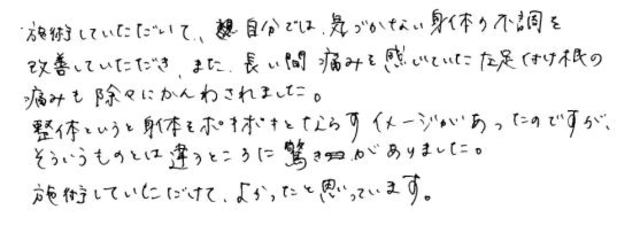 施術していただいて、自分では気づかない身体の不調を
改善していただき、また、長い間痛みを感じていた左足付け根の
痛みも除々にかんわされました。
整体というと身体をポキポキとならすイメージがあったのですが、
そういうものとは違うところに驚きがありました。
施術していただけて、よかったと思っています。